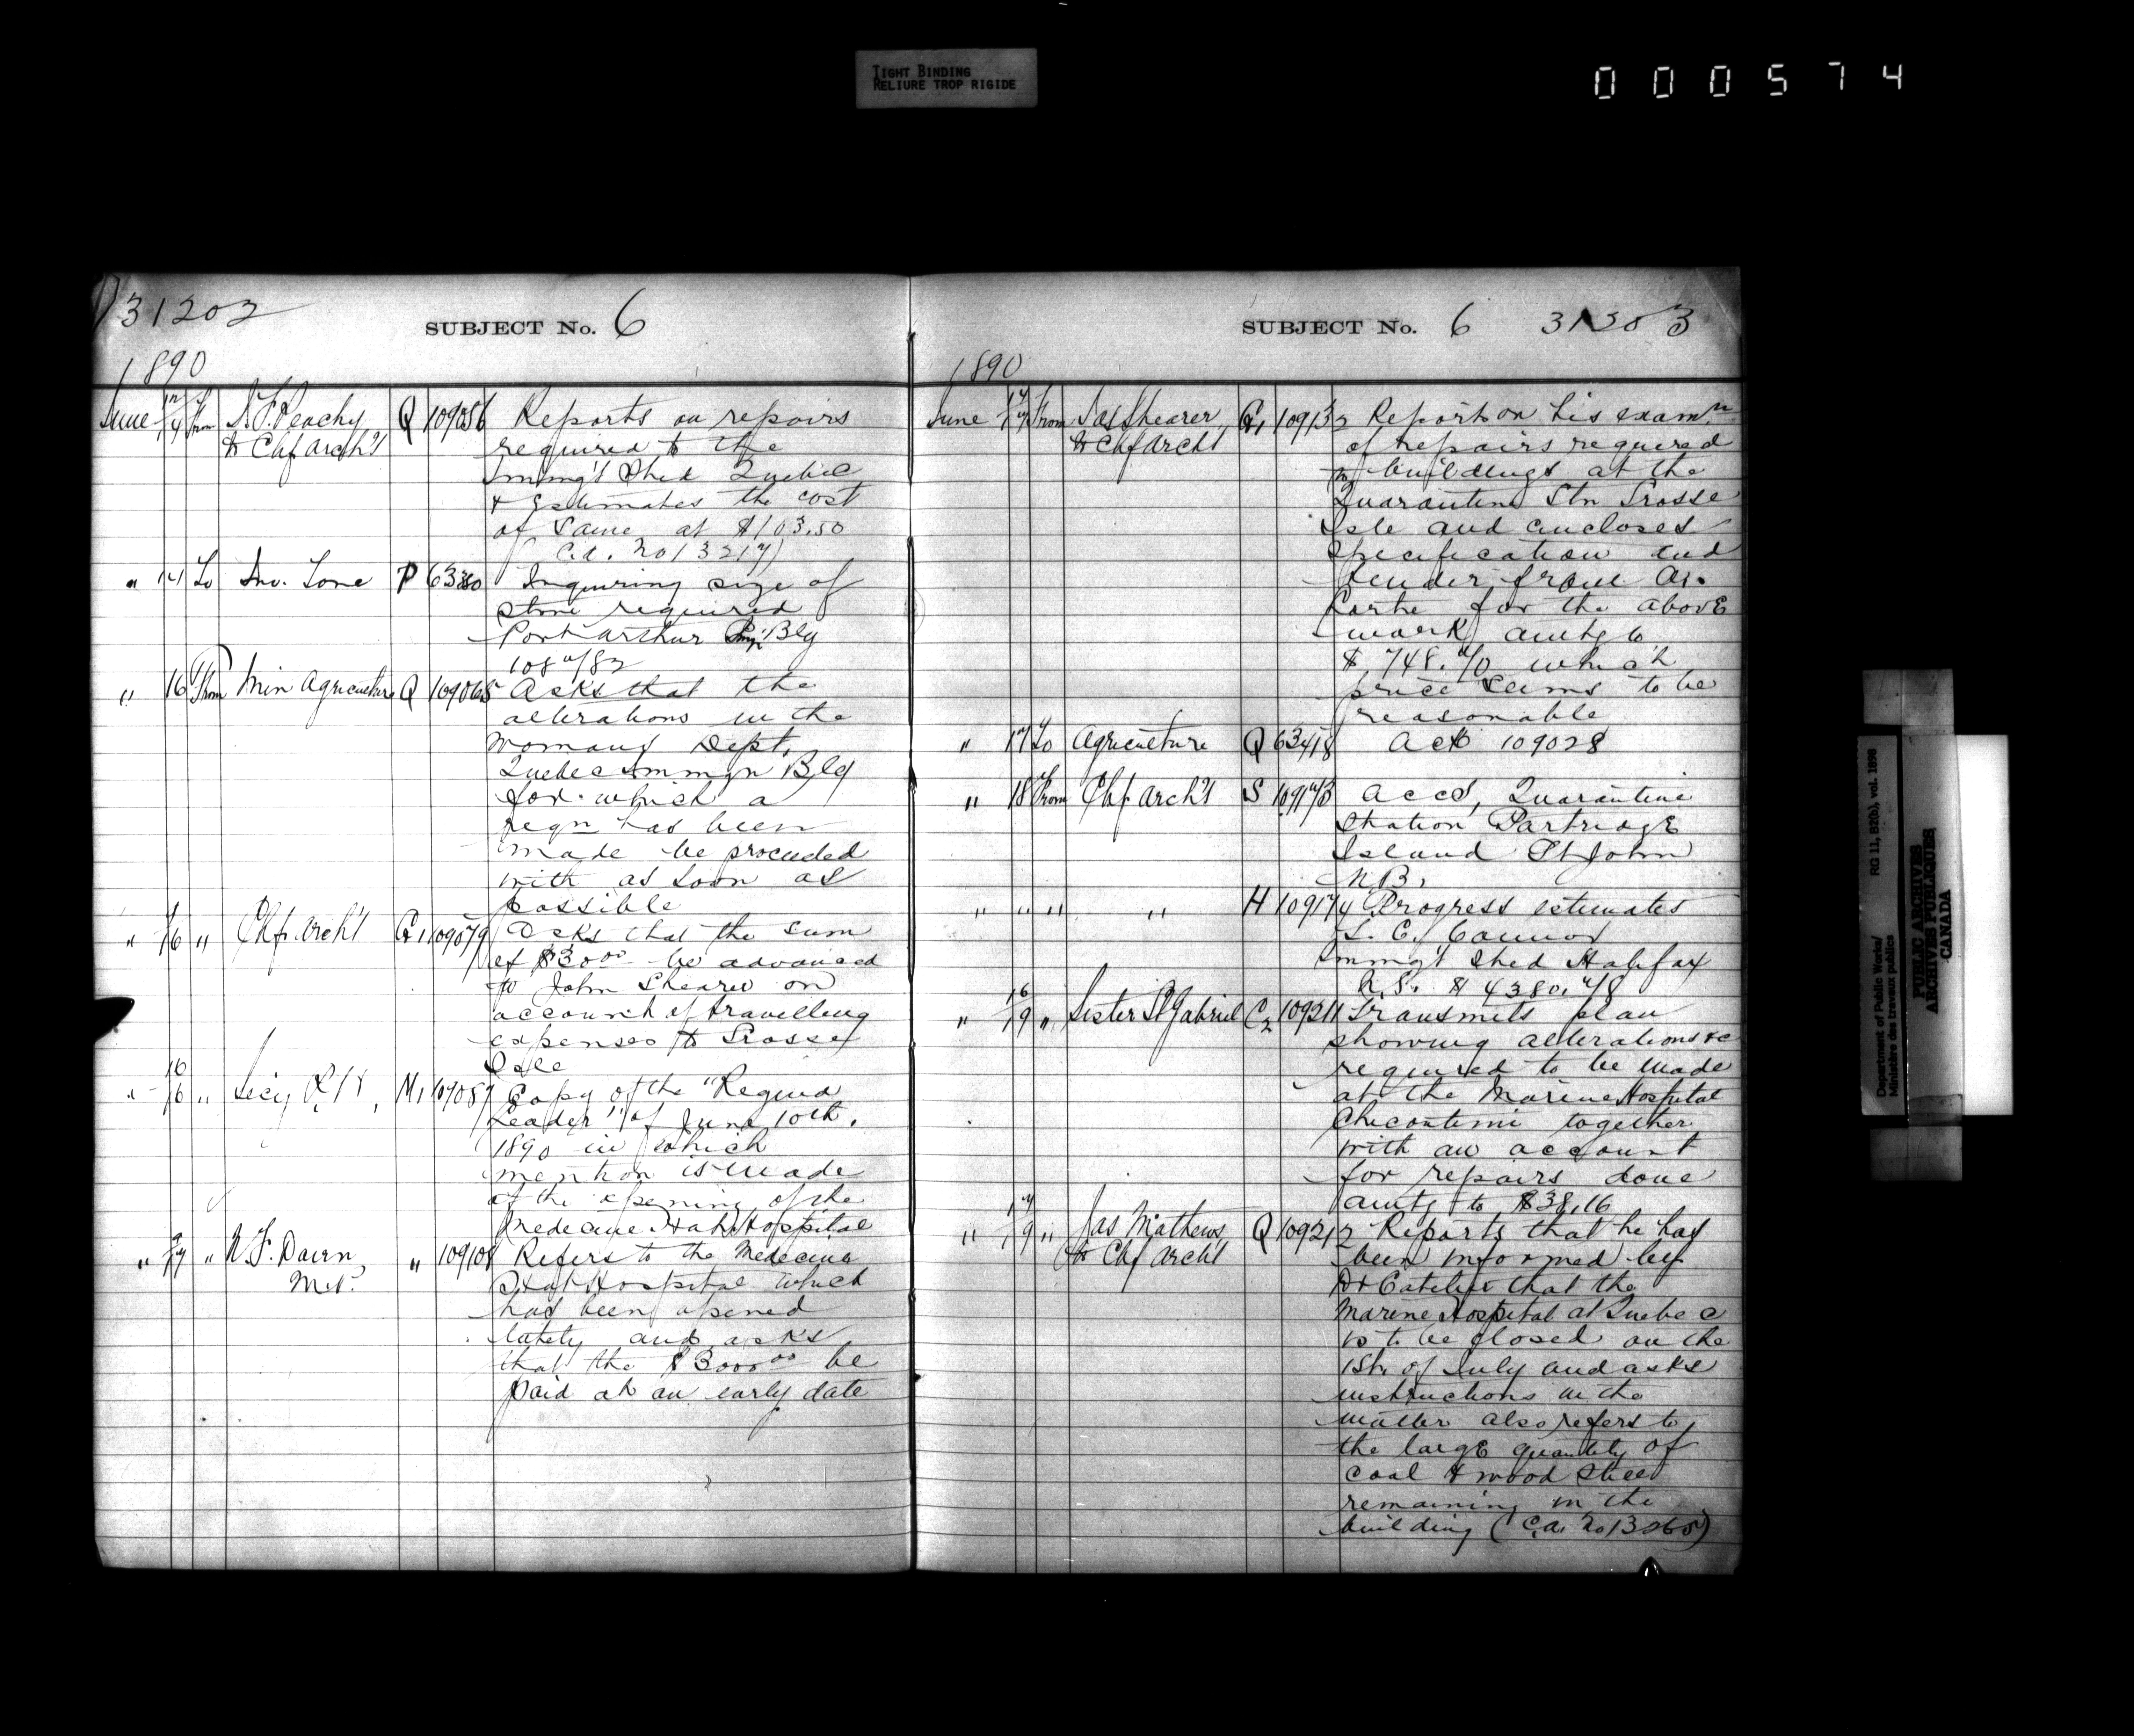 TIGHT BINDING
RELIURE TROP RIGIDE
000574
31202
SUBJECT No. 6
1890
June 12/14 From J. F. Peachy Q 109056 Reports on repairs
to Chf Arch't required to the
Immg't Shed Quebec
& Estimates the cost
of same at $103.50
(C.A. No 13217)
" 14 To Jno. Q P 63380 Inquiring size of
stone required
Port Arthur Bldg
" 16 From Min Agriculture Q 109065 Asks that the
alterations in the
Womans Dept.
Quebec Immgn Bldg
for which a
reqn has been
made be proceeded
with as soon as
possible
" 16 " Chf. Arch't G1 109079 Asks that the sum
of $30.00 be advanced
to John Shearer on
account of travelling
expenses to Grosse
Isle
" 16/16 " Secy M1 109087 Copy of the "Regina
Leader" of June 10th.
1890 in which
mention is made
of the opening of the
Medecine Hat Hospital
" 9/17 " N. F. Davin, " 109108 Refers to the Medecine
M.P. Hat Hospital which
had been opened
lately and asks
that the $3000.00 be
paid at an early date
SUBJECT No. 6 31303
1890
June 17/17 From Jas Shearer, G1 109132 Report on his exam.n
to Chf Arch't of repairs required
to buildings at the
Quarantine Stn Grosse
Isle and encloses
specification and
tender from
for the above
work amtg to
$748.70 which
price seems to be
reasonable
" 17 To Agriculture Q 63418 Ack 109028
" 18 From Chf. Arch't S 109173 Accd, Quarantine
Station Partridge
Island St John
N.B.
" " " " H 109174 Progress estimates
Connor
Immg't Shed Halifax
N.S. $4380.78
" 16/19 " Sister St Gabriel C2 109211 Transmits plan
showing alterations &c
required to be made
at the Marine Hospital
Chicoutimi together
with an account
for repairs done
amtg to $38.16
" 17/19 " Jas Mathews, Q 109212 Reports that he has
to Chf Arch't been informed by
Dr Catellier that the
Marine Hospital at Quebec
is to be closed on the
1st. of July and asks
instructions in the
matter also refers to
the large quantity of
coal & wood still
remaining in the
building (C.A. No 13265)
Department of Public Works/
Ministère des travaux publics
RG 11, B2(b), vol. 1898
PUBLIC ARCHIVES
ARCHIVES PUBLIQUES
CANADA